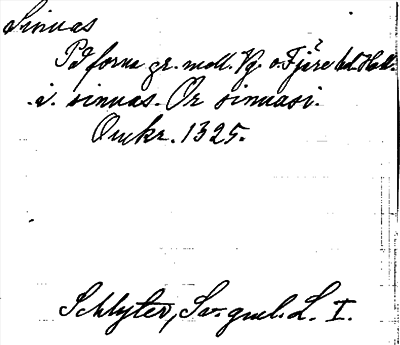 Sinnas
På forna gr. mell. Vg. o Fjäre hd Hall.
i. sinnas. Or sinnasi.
Omkr. 1325.
Schlyter, Sv. gml. L. I.